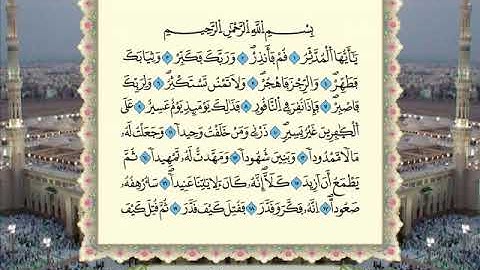 بِسْمِ اللَّهِ الرَّحْمَٰنِ الرَّحِيمِ
يَا أَيُّهَا الْمُدَّثِّرُ ۝١ قُمْ فَأَنذِرْ ۝٢ وَرَبَّكَ فَكَبِّرْ ۝٣ وَثِيَابَكَ
فَطَهِّرْ ۝٤ وَالرُّجْزَ فَاهْجُرْ ۝٥ وَلَا تَمْنُن تَسْتَكْثِرُ ۝٦ وَلِرَبِّكَ
فَاصْبِرْ ۝٧ فَإِذَا نُقِرَ فِي النَّاقُورِ ۝٨ فَذَٰلِكَ يَوْمَئِذٍ يَوْمٌ عَسِيرٌ ۝٩ عَلَى
الْكَافِرِينَ غَيْرُ يَسِيرٍ ۝١٠ ذَرْنِي وَمَنْ خَلَقْتُ وَحِيدًا ۝١١ وَجَعَلْتُ لَهُ
مَالًا مَّمْدُودًا ۝١٢ وَبَنِينَ شُهُودًا ۝١٣ وَمَهَّدتُّ لَهُ تَمْهِيدًا ۝١٤ ثُمَّ
يَطْمَعُ أَنْ أَزِيدَ ۝١٥ كَلَّا إِنَّهُ كَانَ لِآيَاتِنَا عَنِيدًا ۝١٦ سَأُرْهِقُهُ
صَعُودًا ۝١٧ إِنَّهُ فَكَّرَ وَقَدَّرَ ۝١٨ فَقُتِلَ كَيْفَ قَدَّرَ ۝١٩ ثُمَّ قُتِلَ كَيْفَ